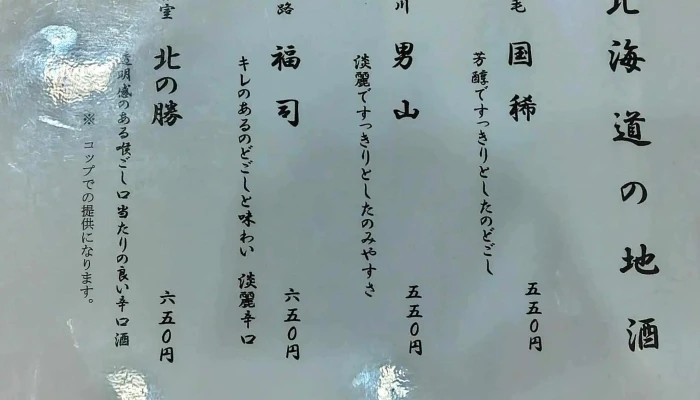 北海道の地酒
毛 国稀 五五〇円
芳醇ですっきりとしたのどごし
川 男山 五五〇円
淡麗ですっきりとしたのみやすさ
路 福司 六五〇円
キレのあるのどごしと味わい 淡麗辛口
室 北の勝 六五〇円
透明感のある喉ごし口当たりの良い辛口酒
※ コップでの提供になります。